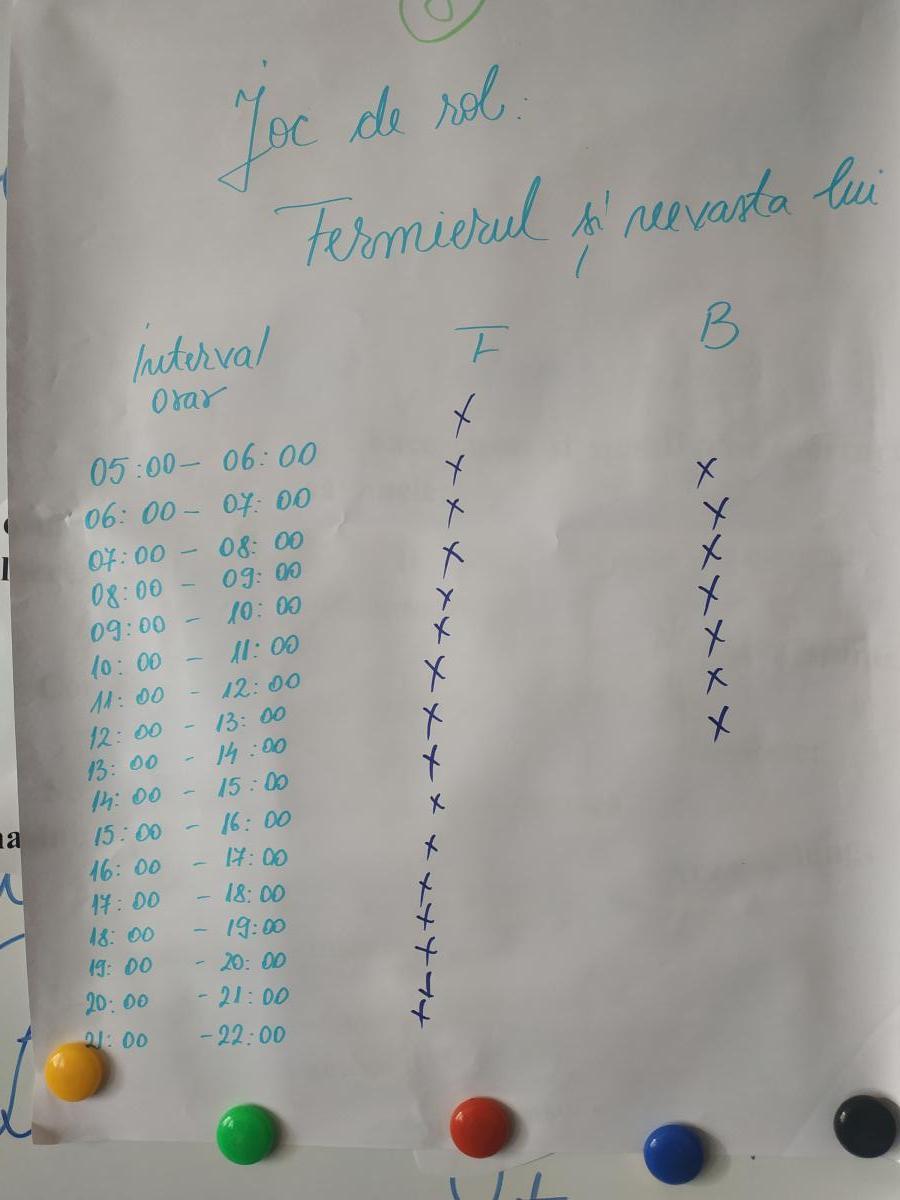 Joc de rol:
Fermierul și nevasta lui
Interval orar F B
x
05:00 – 06:00 x x
06:00 – 07:00 x x
07:00 – 08:00 x x
08:00 – 09:00 x x
09:00 – 10:00 x x
10:00 – 11:00 x x
11:00 – 12:00 x x
12:00 – 13:00 x
13:00 – 14:00 x
14:00 – 15:00 x
15:00 – 16:00 x
16:00 – 17:00 x
17:00 – 18:00 x
18:00 – 19:00 x
19:00 – 20:00 x
20:00 – 21:00 x
21:00 – 22:00